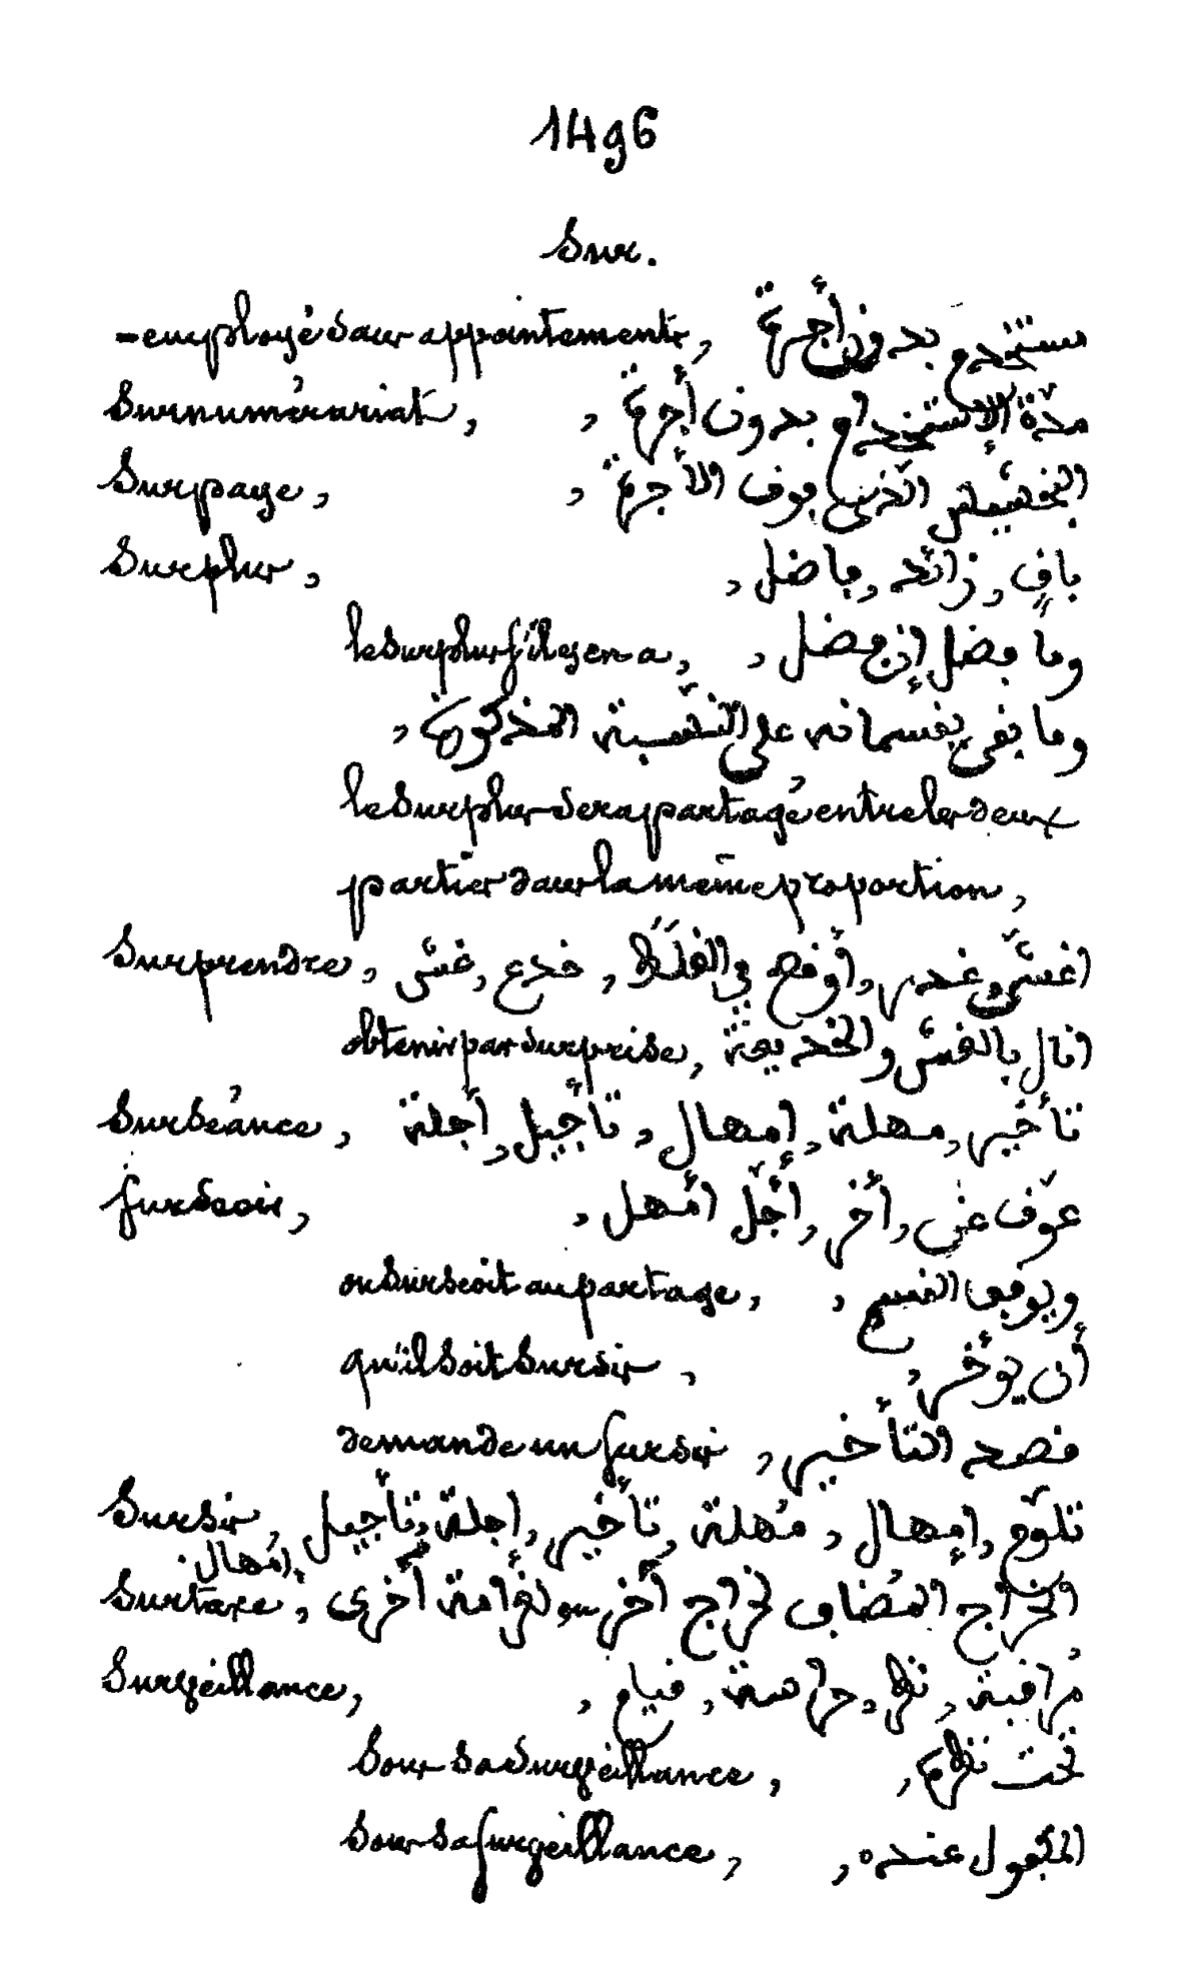 1496
Sur.
-employé sans appointements, مستخدم بدون أجرة
Surnumérariat, مدّة الإستخدام بدون أجرة,
Surpaye, الذي فوق الأجرة,
Surplus, باقٍ, زائد, فاضل,
le surplus s'il y en a, وما فضل إن فضل,
وما بقى يقسمانه على النّسبة المذكورة,
le surplus sera partagé entre les deux
parties dans la même proportion,
Surprendre, غشّ, خدع, أوقع في الغلط,
obtenir par surprise, نال بالغشّ والخديعة
Surséance, تأخير, مهلة, إمهال, تأجيل, أجلة
surseoir, أخّر, أجّل أمهل,
on surseoit au partage, ويوقف القسم,
qu'il soit sursis, أن يؤخّر,
demande un sursis, التأخير,
Sursis, تلوّم, إمهال, مُهلة, تأخير, إجلة, تأجيل
امهال.
Surtaxe, الخراج المضاف لخراج أخر، لغرامة أخرى
Surveillance, مُراقبة, نظر, حراسة, قيام,
Sous sa surveillance, تحت نظره,
sous sa surveillance, عنده,